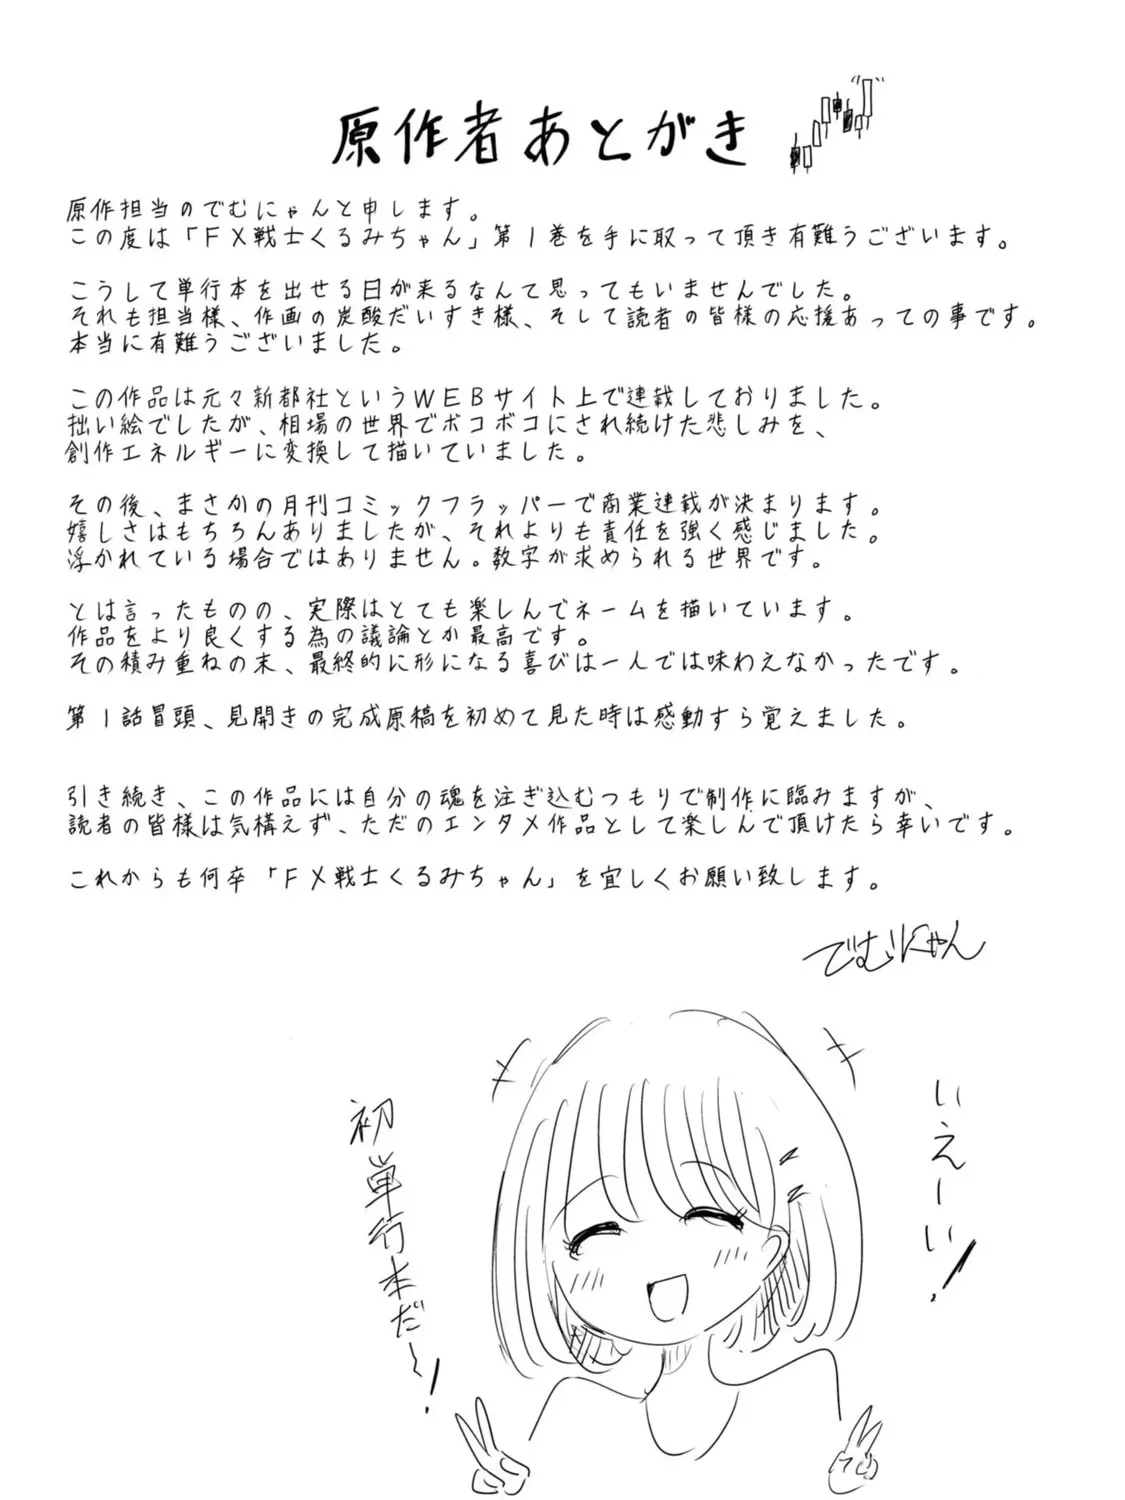 原作者あとがき
原作担当のでむにゃんと申します。
この度は「FX戦士くるみちゃん」第1巻を手に取って頂き有難うございます。
こうして単行本を出せる日が来るなんて思ってもいませんでした。
それも担当様、作画の炭酸だいすき様、そして読者の皆様の応援あっての事です。
本当に有難うございました。
この作品は元々新都社というWEBサイト上で連載しておりました。
拙い絵でしたが、相場の世界でボコボコにされ続けた悲しみを、
創作エネルギーに変換して描いていました。
その後、まさかの月刊コミックフラッパーで商業連載が決まります。
嬉しさはもちろんありましたが、それよりも責任を強く感じました。
浮かれている場合ではありません。数字が求められる世界です。
とは言ったものの、実際はとても楽しんでネームを描いています。
作品をより良くする為の議論とか最高です。
その積み重ねの末、最終的に形になる喜びは一人では味わえなかったです。
第1話冒頭、見開きの完成原稿を初めて見た時は感動すら覚えました。
引き続き、この作品には自分の魂を注ぎ込むつもりで制作に臨みますが、
読者の皆様は気構えず、ただのエンタメ作品として楽しんで頂けたら幸いです。
これからも何卒「FX戦士くるみちゃん」を宜しくお願い致します。
でむにゃん
いえーい!
初単行本だ〜!